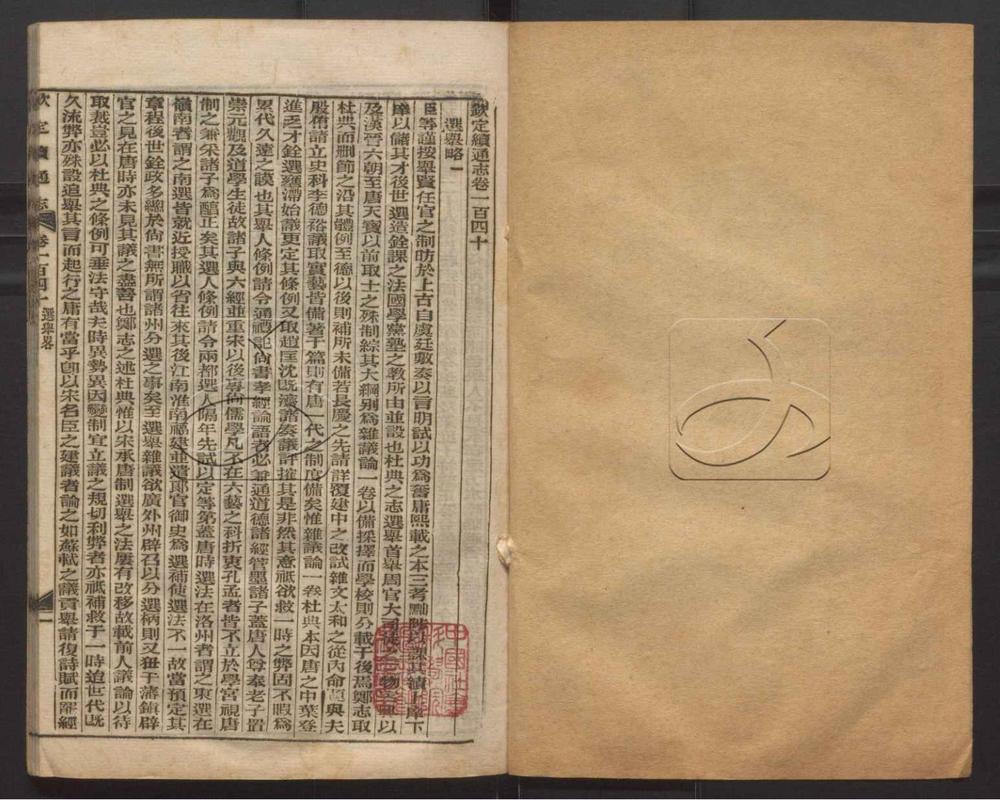 欽定續通志卷一百四十
選舉略一
臣等謹按舉賢任官之制昉於上古自虞廷敷奏以言明試以功為奮庸熙載之本三考黜陟以課其績上庠下
庠以儲其才後世選造銓課之法國學黨塾之教所由並設也杜典之志選舉首舉周官大司徒之三物賓興以
及漢晉六朝至唐天寶以前取士之殊制綜其大綱別為雜議論一卷以備採擇而學校則分載于後焉鄭志取
杜典而刪節之沿其體例至德以後則補所未備若長慶之先請詳覆建中之改試雜文太和之從內命與夫
殷侑請立史科李德裕議取實藝皆備著于篇則有唐一代之制度備矣惟雜議論一卷杜典本因唐之中葉登
進乏才銓選壅滯始議更定其條例又取趙匡沈既濟諸奏議詳搉其是非然其意祇欲救一時之弊固不暇為
累代久遠之謨也其舉人條例請令通禮記尚書孝經論語者必兼通道德諸經管墨諸子蓋唐人尊奉老子置
崇元觀及道學生徒故諸子與六經並重宋以後專尚儒學凡不在六藝之科折衷孔孟者皆不立於學宮視唐
制之兼采諸子為醇正矣其選人條例請令兩都選人隔年先試以定等第蓋唐時選法在洛州者謂之東選在
嶺南者謂之南選皆就近授職以省往來其後江南淮南福建並遣郎官御史為選補使選法不一故當預定其
章程後世銓政多總於尚書無所謂諸州分選之事矣至選舉雜議欲廣外州辟召以分選柄則又狃于藩鎮辟
官之見在唐時亦未見其議之盡善也鄭志之述杜典惟以宋承唐制選舉之法屢有改移故載前人議論以待
取裁豈必以杜典之條例可垂法守哉夫時異勢異因變制宜立議之規切利弊者亦祇補救于一時迨世代既
久流弊亦殊設追舉其言而起行之庸有當乎即以宋名臣之建議者論之如蘇軾之議貢舉請復詩賦而罷經
欽定續通志 卷一百四十 選舉略 一